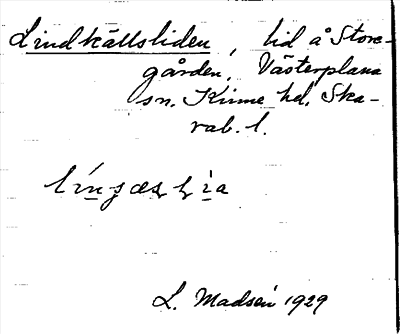 Lindkällsliden, lid å Store-
gården, Västerplana
sn. Kinne hd. Ska-
rab. l.
L. Madsén 1929